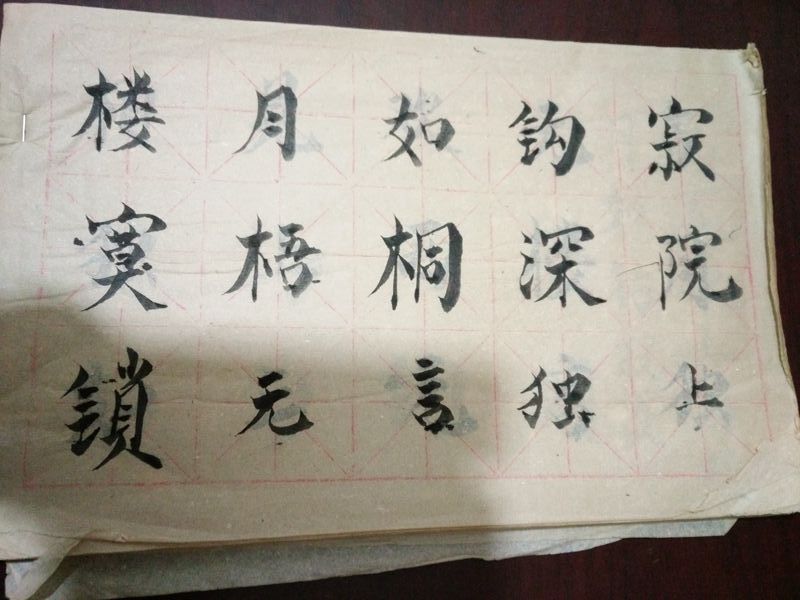 楼月如钩寂
寞梧桐深院
锁无言独上